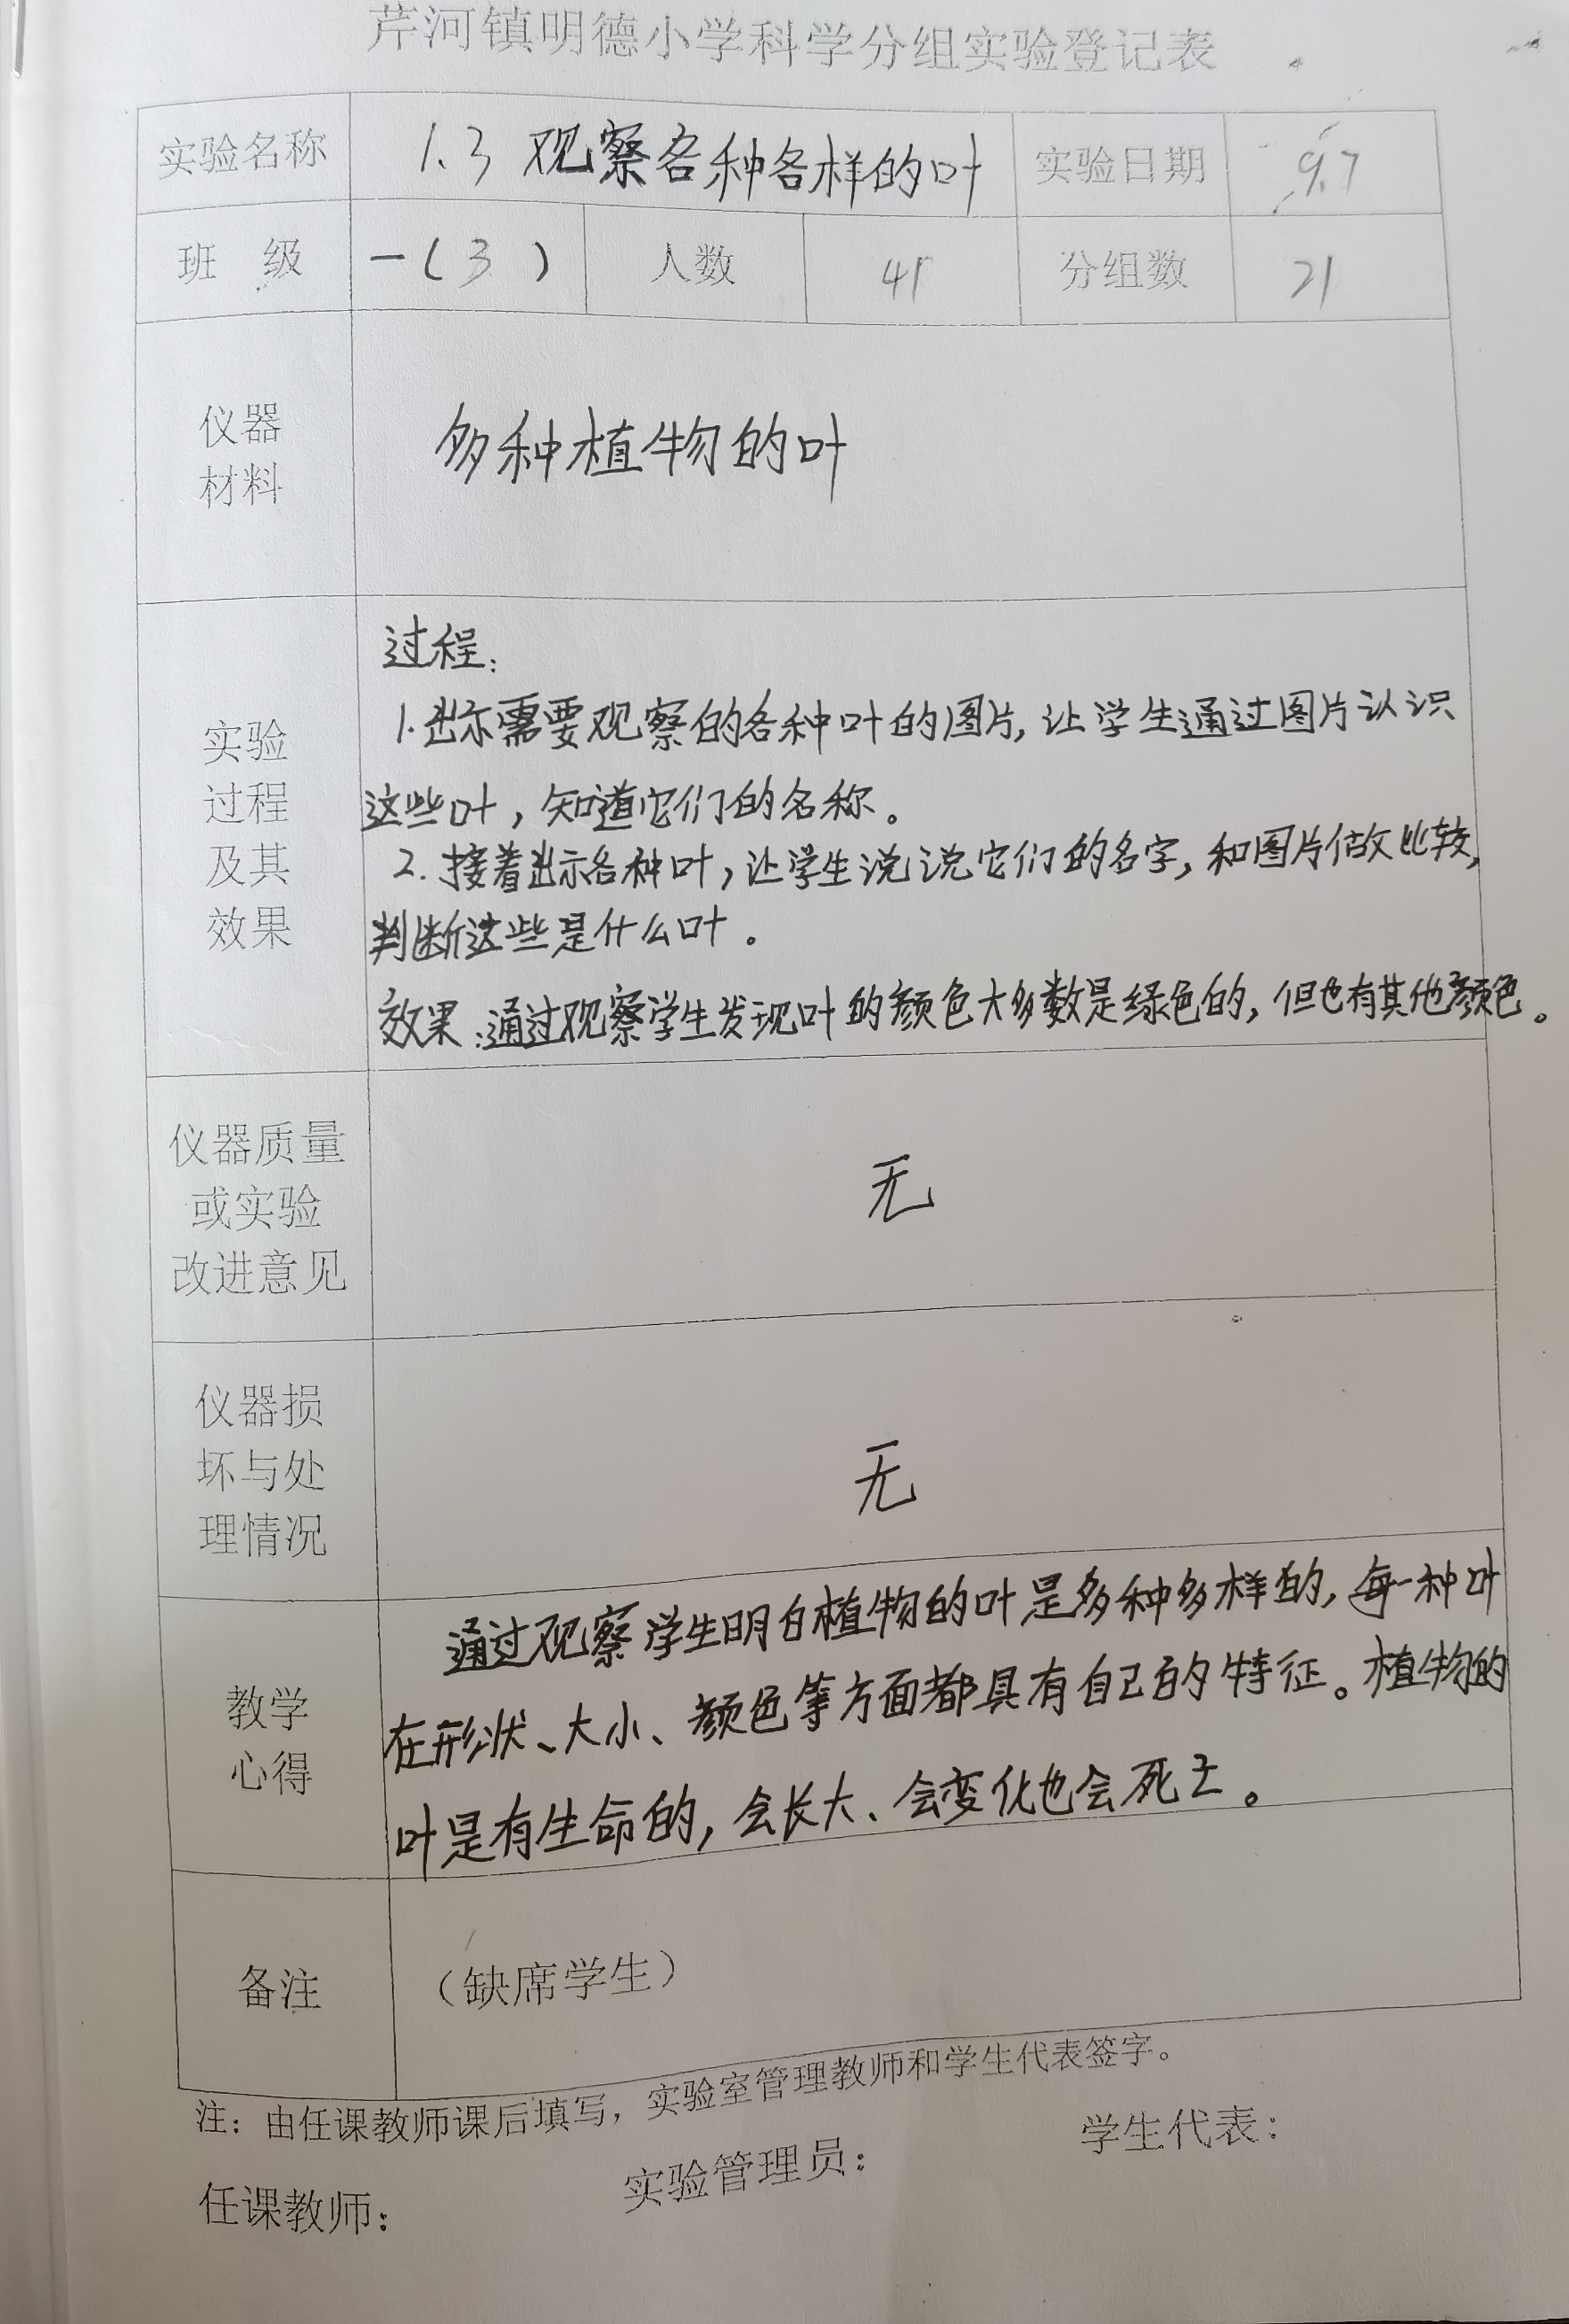 芹河镇明德小学科学分组实验登记表
实验名称 1.3 观察各种各样的叶 实验日期 9.7
班 级 一(3) 人数 41 分组数 21
仪器
材料
多种植物的叶
实验
过程
及其
效果
过程:
1.出示需要观察的各种叶的图片,让学生通过图片认识
这些叶,知道它们的名称。
2.接着出示各种叶,让学生说说它们的名字,和图片做比较,
判断这些是什么叶。
效果:通过观察学生发现叶的颜色大多数是绿色的,但也有其他颜色。
仪器质量
或实验
改进意见
无
仪器损
坏与处
理情况
无
教学
心得
通过观察学生明白植物的叶是多种多样的,每一种叶
在形状、大小、颜色等方面都具有自己的特征。植物的
叶是有生命的,会长大、会变化也会死亡。
备注 (缺席学生)
注:由任课教师课后填写,实验室管理教师和学生代表签字。
任课教师: 实验管理员: 学生代表: